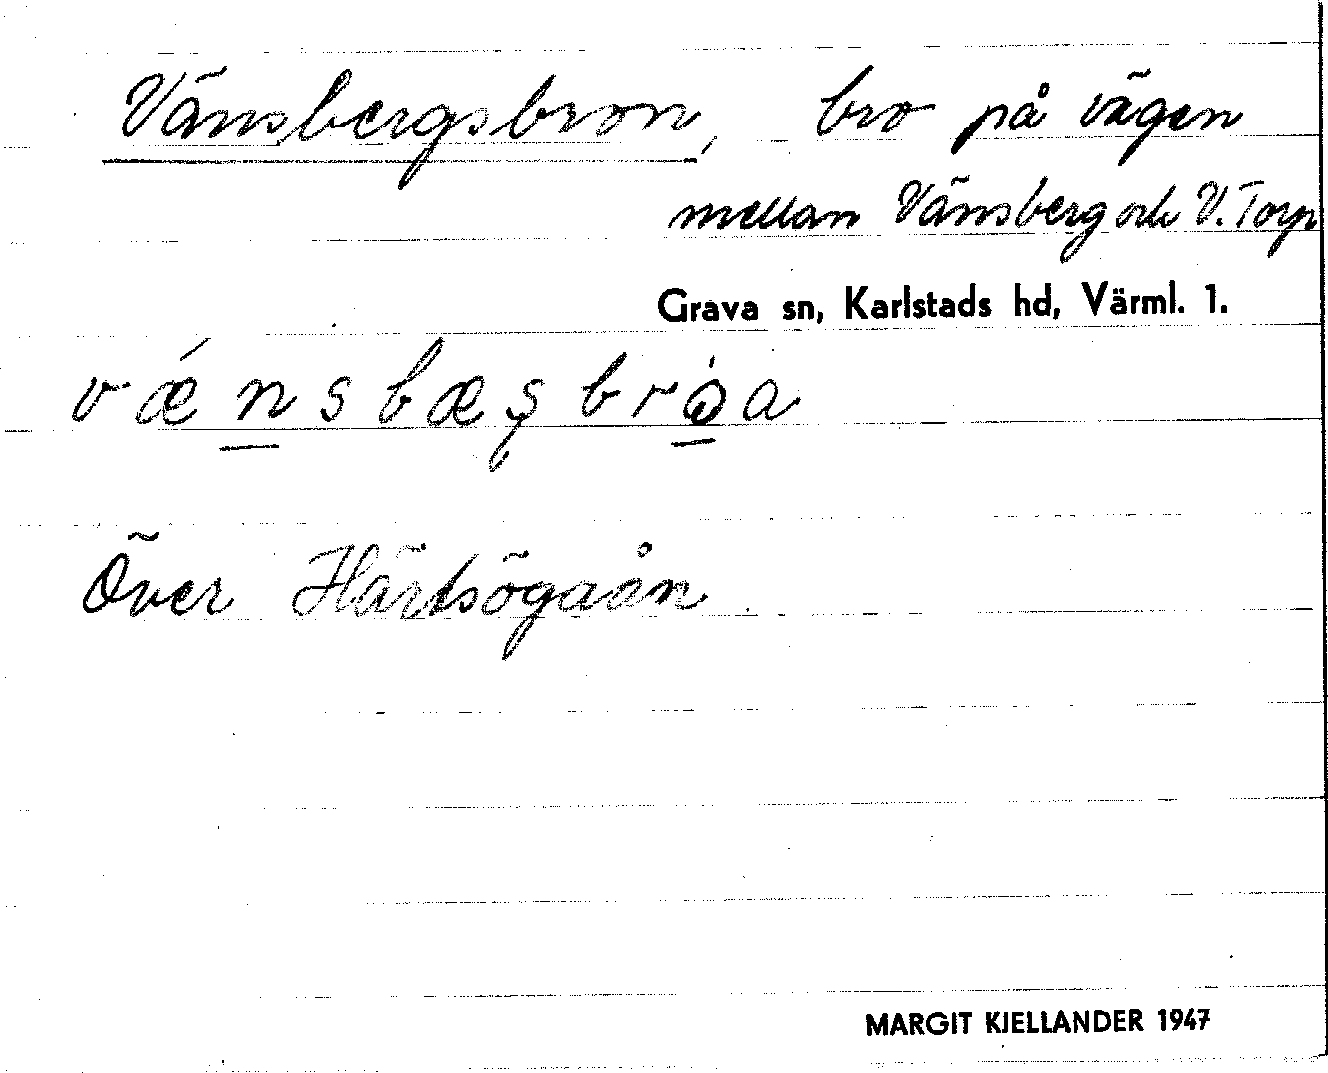 Vänsbergsbron, bro på vägen
mellan Vänsberg och V. Torp
Grava sn, Karlstads hd, Värml. 1.
vǽn̲sbæʂbrò̲a
Över Härtsögaån
MARGIT KJELLANDER 1947